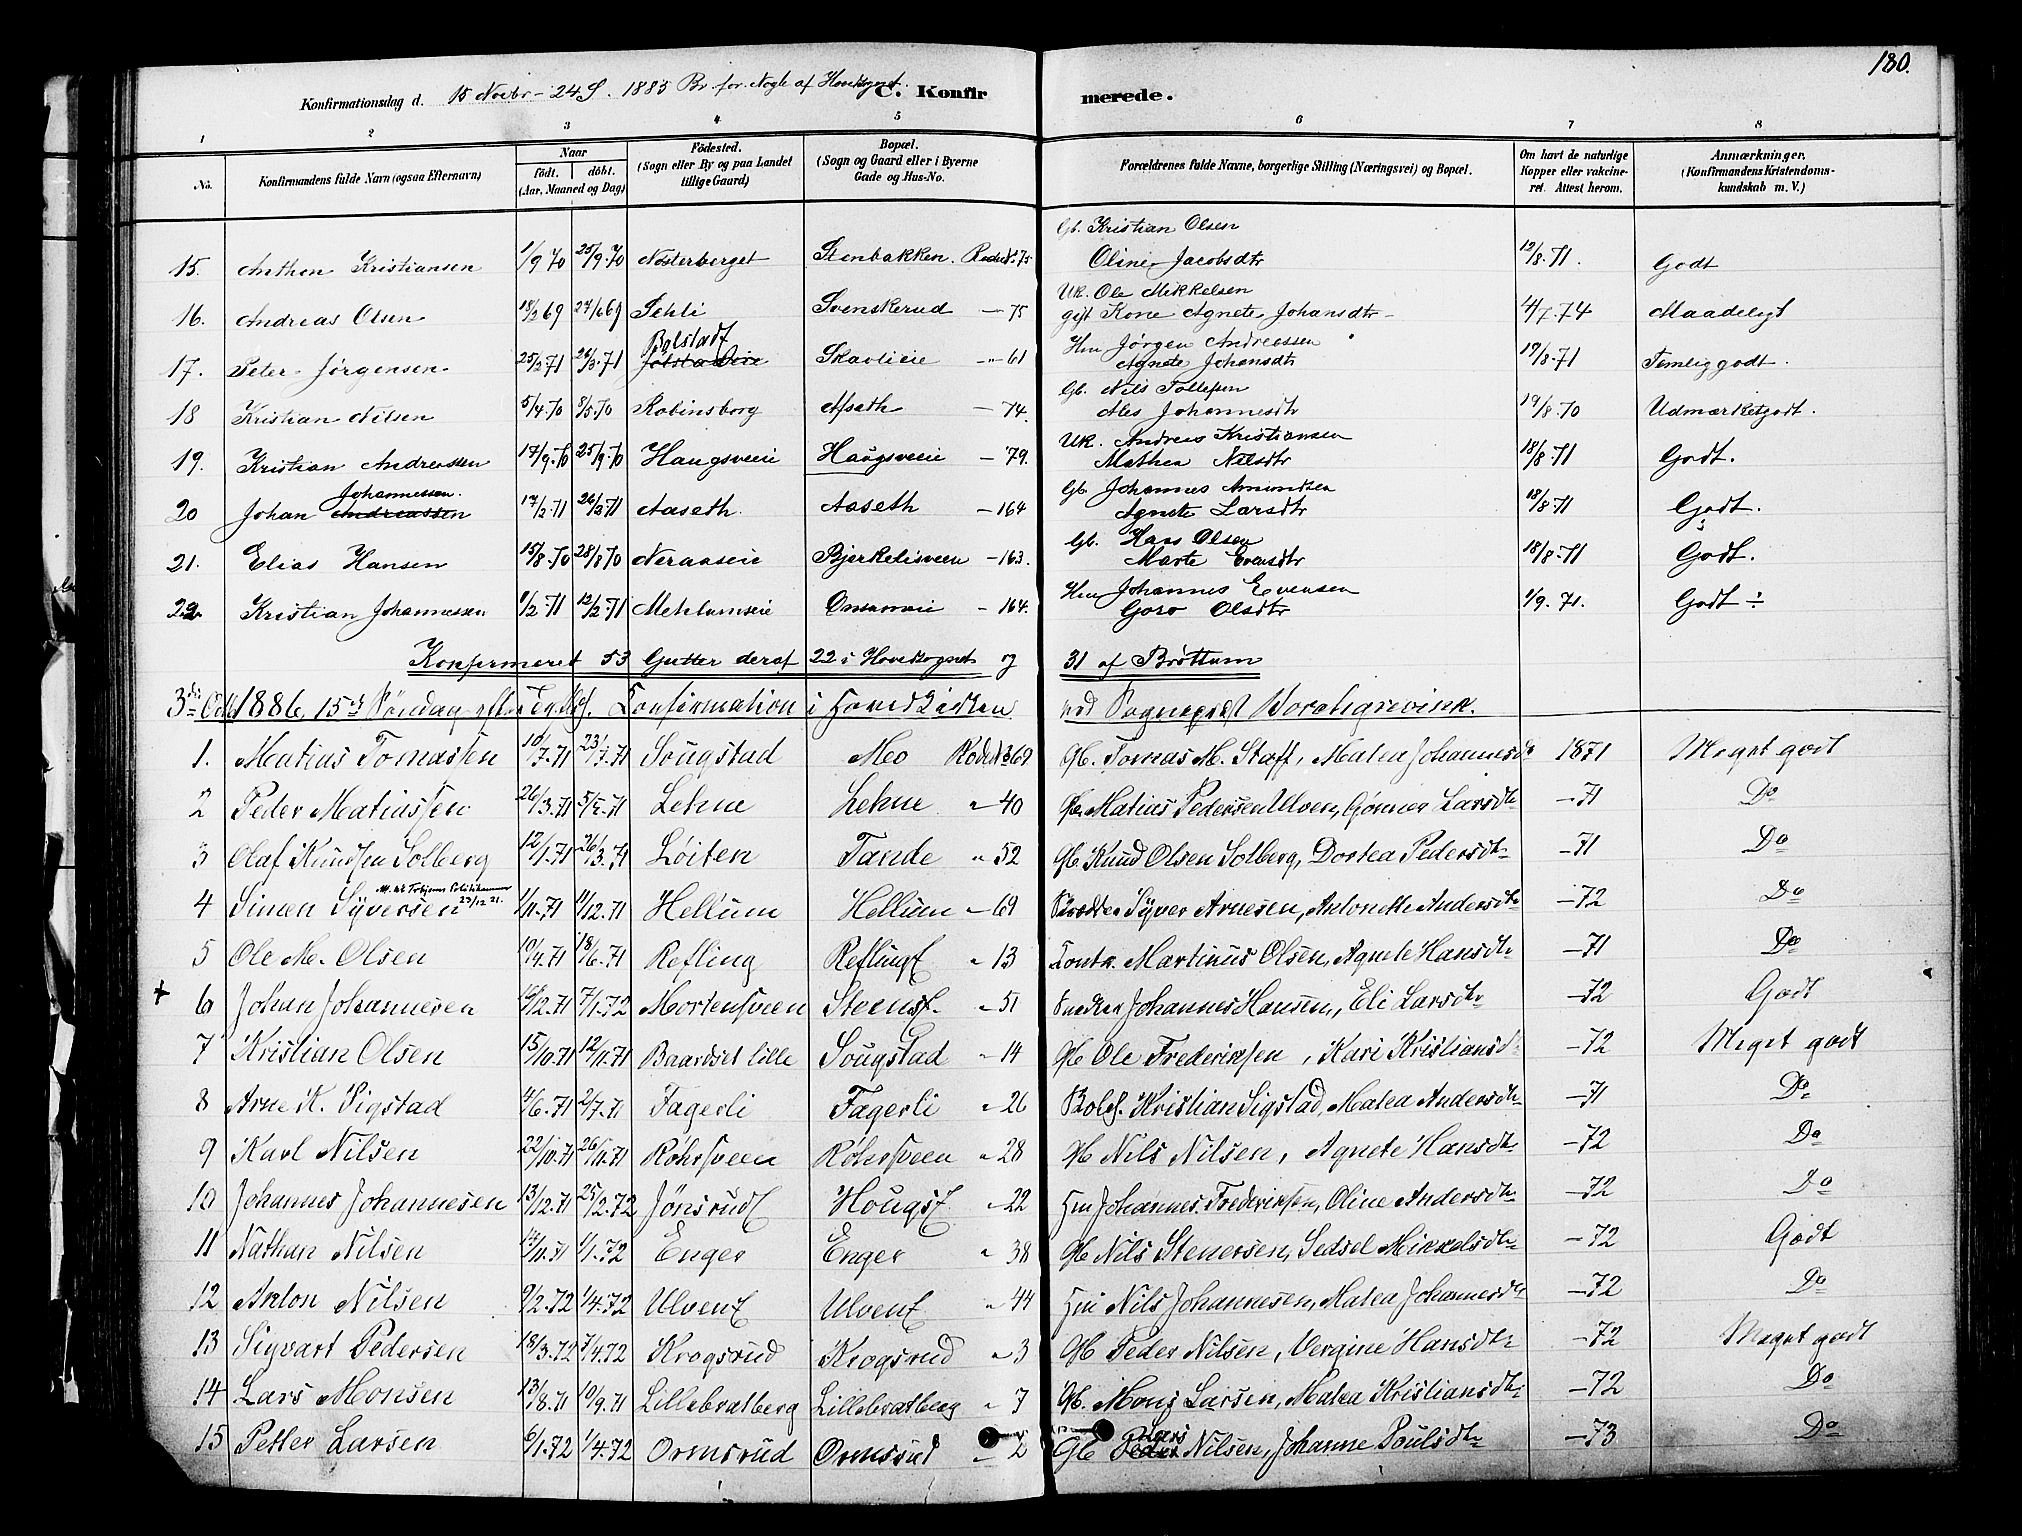 180.
Konfirmationsdag d. 15 Novbr - 24 S. 1885 Br. for Nogle af Hovedsognet. C. Konfirmerede.
1 2 3 4 5 6 7 8
No. Konfirmandens fulde Navn (ogsaa Efternavn) Naar født. døbt. (Aar, Maaned og Dag) Födested. (Sogn eller By og paa Landet tillige Gaard) Bopæl. (Sogn og Gaard eller i Byerne Gade og Hus-No. Forældrenes fulde Navne, borgerlige Stilling (Næringsvei) og Bopæl. Om havt de naturlige Kopper eller vakcineret. Attest herom. Anmærkninger. (Konfirmandens Kristendomskundskab m. V.)
15. Anthon Kristiansen 1/9 70 25/9.70 Nosterberget Stenbakken. Rode No 75 Gb. Kristian Olsen Oline Jacobsdtr 12/8.71. Godt
16. Andreas Olsen 18/2 69 27/6 69 Sehli Svenskerud - 75 Uk. Ole Mikkelsen gift Kone Agnete Johansdtr 4/7.74 Maadeligt
17. Peter Jørgensen 25/2 71 26/3.71 Bolstad Skavlieie - 61 Hm Jørgen Andreassen Agnete Johansdtr 19/8.71 Temlig godt.
18 Kristian Nilsen 5/4.70 8/5.70 Robinsborg Afseth - 74. Gb. Nils Tollefsen Ales Johannesdtr 19/8.70 Udmærketgodt.
19. Kristian Andreassen 17/9.70 25/9.70 Haugsveie Haugsveie - 79. Uk. Andreas Kristiansen Mathea Nilsdtr 18/8.71 Godt.
20 Johan Andreassen Johannessen. 17/2.71 26/3.71 Aaseth. Aaseth - 164 Gb. Johannes Amundsen Agnete Larsdtr 18/8.71 Godt.
21. Elias Hansen 15/8.70 28/8 70 Neraaseie Bjerkelisveen - 163. Gb. Hans Olsen Marte Evensdtr 18/8.71 Godt.
22 Kristian Johannessen 1/2.71 12/2.71 Mehlumseie - 164. Hm Johannes Evensen Goro Olsdtr 1/9.71. Godt ÷
Konfirmeret 53 Gutter deraf 22 i Hovedsognet og 31 af Brøttum
3die Octb 1886, 15de Søndag efter Confirmation i Hovedkirken ved Sognepræst Borchgrevink.
1. Matias Tomassen 10/7.71 23/7.71 Sougstad Moe Rode No 69 Gb. Tomas M. Staff, Matea Johannesdr 1871 Meget godt
2 Peder Matiassen 26/3.71 5/5.71 Lehne Lehne " 40 Gb. Matias Pedersen Ulven, Gønner Larsdtr - 71 Do
3 Olaf Knudsen Solberg 12/1.71 26/3.71 Løiten Tande " 52 Gb Knud Olsen Solberg, Dortea Pedersdtr - 71 Do
4 Simen Syversen 23/12 21. 1/11.71 11/12.71 Hellum Hellum - 69 Syver Arnesen, Antonette Andersdtr - 72 Do
5 Ole M. Olsen 10/4.71 18/6.71 Refling Reflingf " 13 Martinus Olsen, Agnete Hansdtr - 71 Do
+ 6 Johan Johannesen 7/1.72 Mortensveen Steensf. " 51 Snedker Johannes Hansen, Eli Larsdtr - 72 Godt
7 Kristian Olsen 15/10.71 12/11.71 Baardset lille Sougstad - 14 Gb Ole Frederiksen, Kari Kristiansdr - 72 Meget godt
8 Arne K. Sigstad 4/6.71 2/7.71 Fagerli Fagerli " 26 Kristian Sigstad, Matea Andersdtr - 71 Do
9 Karl Nilsen 22/10.71 26/11.71 Röhrsveen Röhrsveen " 28 Gb Nils Nilsen, Agnete Hansdtr - 72 Do
10 Johannes Johannesen 13/12.71 25/2.72 Jönsrudf Hougsf " 22 Hm Johannes Frederiksen, Oline Andersdtr - 72 Do
11 Nathan Nilsen 14/11.71 1/1.72 Enger Enger " 38 Gb Nils Stenersen, Sedsel Mikkelsdtr - 72 Godt
12 Anton Nilsen 9/2.72 1/4.72 Ulvenf Ulvenf " 44 Hm Nils Johannesen, Matea Johannesdtr - 72 Do
13 Sigvart Pedersen 18/3.72 7/4.72 Krogsrud Krogsrud " 3 Gb Peder Nilsen, Vergine Hansdtr - 72 Meget godt
14 Lars Monsen 13/8.71 10/9.71 Lillebratberg Lillebratberg " 7 Gb. Mons Larsen, Matea Kristiansdtr - 72 Do
15 Petter Larsen 6/1.72 1/4.72 Ormsrud Ormsrud - 2 Gb Peder Lars Nilsen, Johanne Poulsdtr - 73 Do